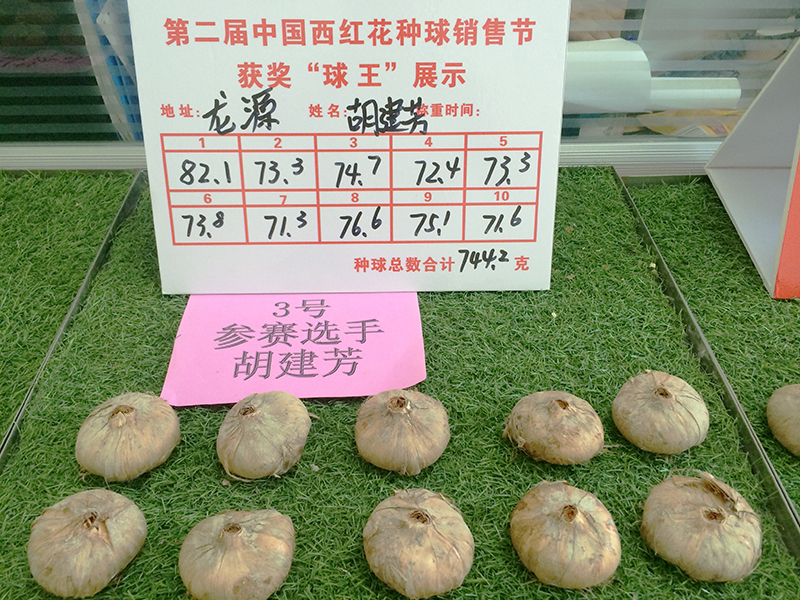 第二届中国西红花种球销售节
获奖“球王”展示
地址: 龙源 姓名: 胡建芳 称重时间:
1 2 3 4 5
82.1 73.3 74.7 72.4 73.3
6 7 8 9 10
73.8 71.3 76.6 75.1 71.6
种球总数合计 744.2 克
3号
参赛选手
胡建芳